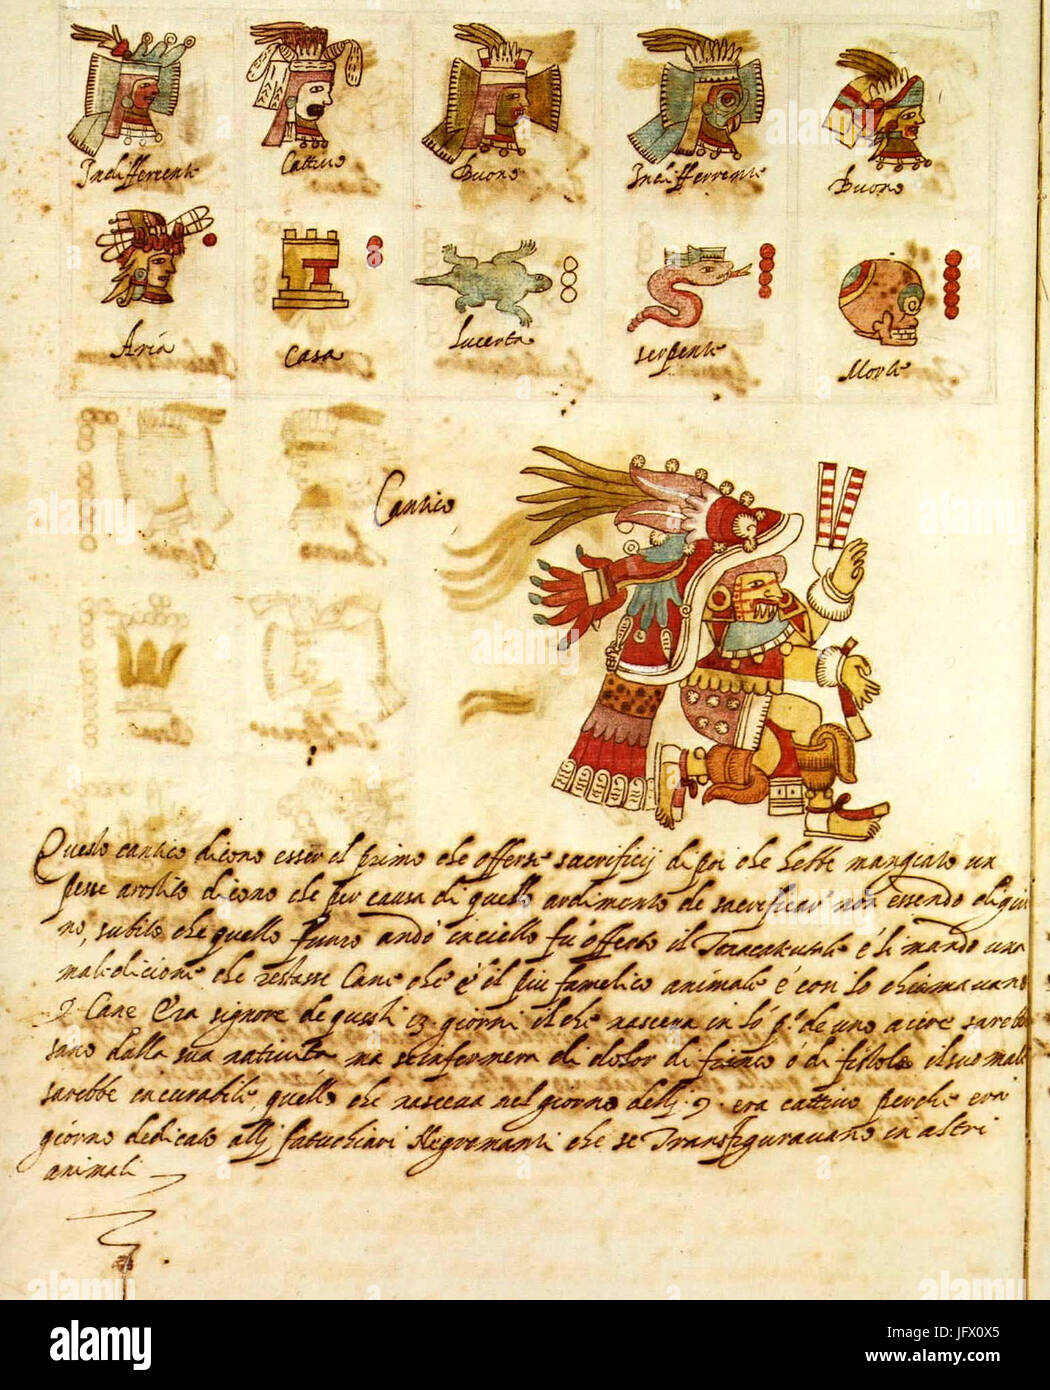 Indifferente Cattivo Buono Indifferrente Buono
Aria Casa Lucerta serpente Morte
Cantico
Questo cantico dicono esser il primo che offerse sacrificij di poi che hebbe mangiato un
pesse arostito dicono che per causa di quello ardimento de sacreficar non essendo digiu
no, subito che quello fumo andò in ciello fu offesto il e li mando una
maledicione che restasse Cane che è il piu famelico animale é con lo chiamavano
9 Cane Era signore de questi 13 giorni il che nasceva in lo p.º de uno acere sarebbe
sano dalla sua natività ma se infermeva di dolor di fianco ó di fistole il suo male
sarebbe incurabile, quello che nasceva nel giorno delli .9. era cattivo perche era
giorno dedicato allj fatuchiari Negromanti che se Transfiguravano in altri
animali
alamy
JFX0X5
www.alamy.com